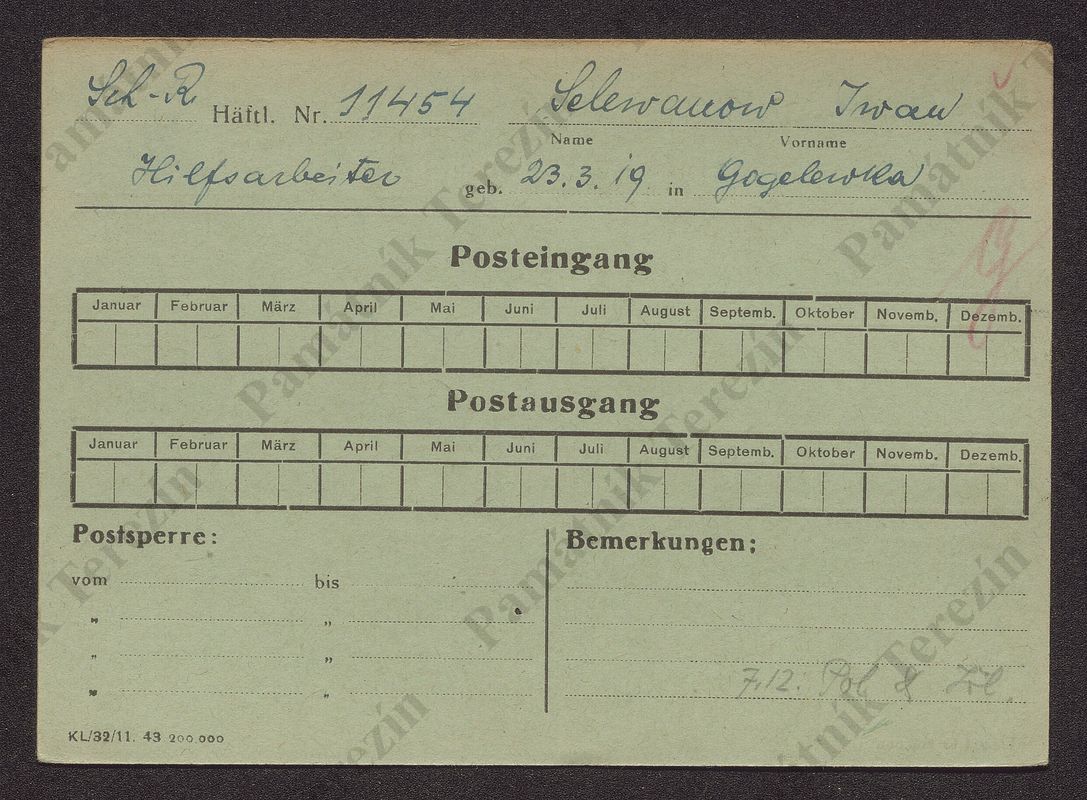 Sch-R. Häftl. Nr. 11454 Selewanow Iwan
Name Vorname
Hilfsarbeiter geb. 23.3.19 in Gogelewka
Posteingang
Januar Februar März April Mai Juni Juli August Septemb. Oktober Novemb. Dezemb.
Postausgang
Januar Februar März April Mai Juni Juli August Septemb. Oktober Novemb. Dezemb.
Postsperre: Bemerkungen:
vom bis
" "
" "
" "
7.12. Pol
KL/32/11. 43 200.000
Památník Terezín